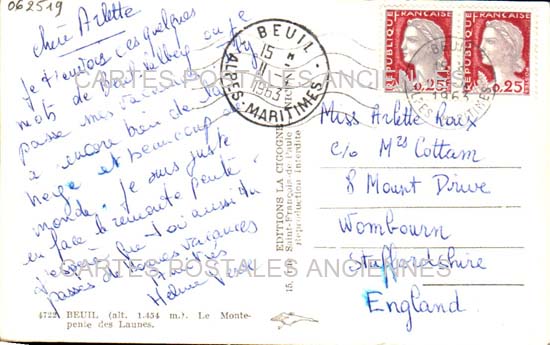 062519
Chère Arlette
Je t'envois ces quelques
mots de ou je
passe mes vacances. Il y
a encore bien de la
neige et beaucoup de
monde. Je suis juste
en face le remonte pente.
J'espère que toi aussi tu
passes de bonnes vacances
Amitiés
Hélène
4722 BEUIL (alt. 1.454 m.). Le Monte-
pente des Launes.
EDITIONS LA CIGOGNE
Saint-François-de-Paule - NICE
Reproduction Interdite
BEUIL
15
1963
ALPES-MARITIMES
REPUBLIQUE FRANÇAISE
0,25
REPUBLIQUE FRANÇAISE
0,25
BEUIL
Miss Arlette Roux
c/o Mrs Cottam
8 Mount Drive
Wombourn
Staffordshire
England.
CARTES POSTALES ANCIENNES
CARTES POSTALES ANCIENNES